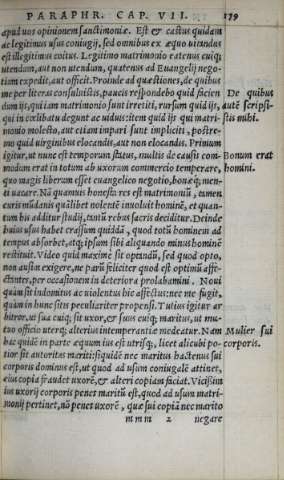 PARAPHR. CAP. VII. 179
apud uos opinionem sanctimoniæ. Est & castus quidam
ac legitimus usus coniugij, sed omnibus ex æquo utendus
est illegitimus coitus. Legitimo matrimonio eatenus cuiq;
utendum, aut non utendum, quatenus ad Euangelij nego-
tiam expedit, aut officit. Proinde ad quæstiones, de quibus
me per literas consuluistis, paucis respōdebo quid facien
De quibus
dum ijs, qui iam matrimonio sunt irretiti, rursum quid ijs,
autē scripsi-
qui in cœlibatu degunt ac uiduis: item quid ijs qui matri-
stis mihi.
monio molesto, aut etiam impari sunt impliciti, postre-
mo quid uirginibus elocandis, aut non elocandis. Primum
igitur, ut nunc est temporum status, multis de causis com-
Bonum erat
modum erat in totum ab uxorum commercio temperare,
homini.
quo magis liberum esset euangelico negotio, bonæq; men-
ti uacare. Nā quamuis honesta res est matrimoniū, tamen
curis mūdanis quālibet nolentē inuoluit hominē, et quan-
tum his additur studij, tantū rebus sacris deciditur. Deinde
huius usus habet crassum quiddā, quod totū hominem ad
tempus absorbet, atq; ipsum sibi aliquando minus hominē
restituit. Video quid maximè sit optandū, sed quod opto,
non ausim exigere, ne parū feliciter quod est optimū affe-
ctantes, per occasionem in deteriora prolabamini. Noui
quàm sit indomitus ac uiolentus hic affectus: nec me fugit,
quàm in hunc sitis peculiariter propensi. Tutius igitur ar
bitror, ut sua cuiq; sit uxor, & suus cuiq; maritus, ut mu-
tuo officio uterq; alterius intemperantiæ medeatur. Nam
Mulier sui
hac quidē in parte æquum ius est utrisq;, licet alicubi po-
corporis.
tior sit autoritas mariti: siquidē nec maritus hactenus sui
corporis dominus est, ut quod ad usum coniugalē attinet,
eius copia fraudet uxorē, & alteri copiam faciat. Vicissim
ius uxorij corporis penes maritū est, quod ad usum matri-
monij pertinet, nō penes uxorē, quæ sui copiā nec marito
mmm 2 negare